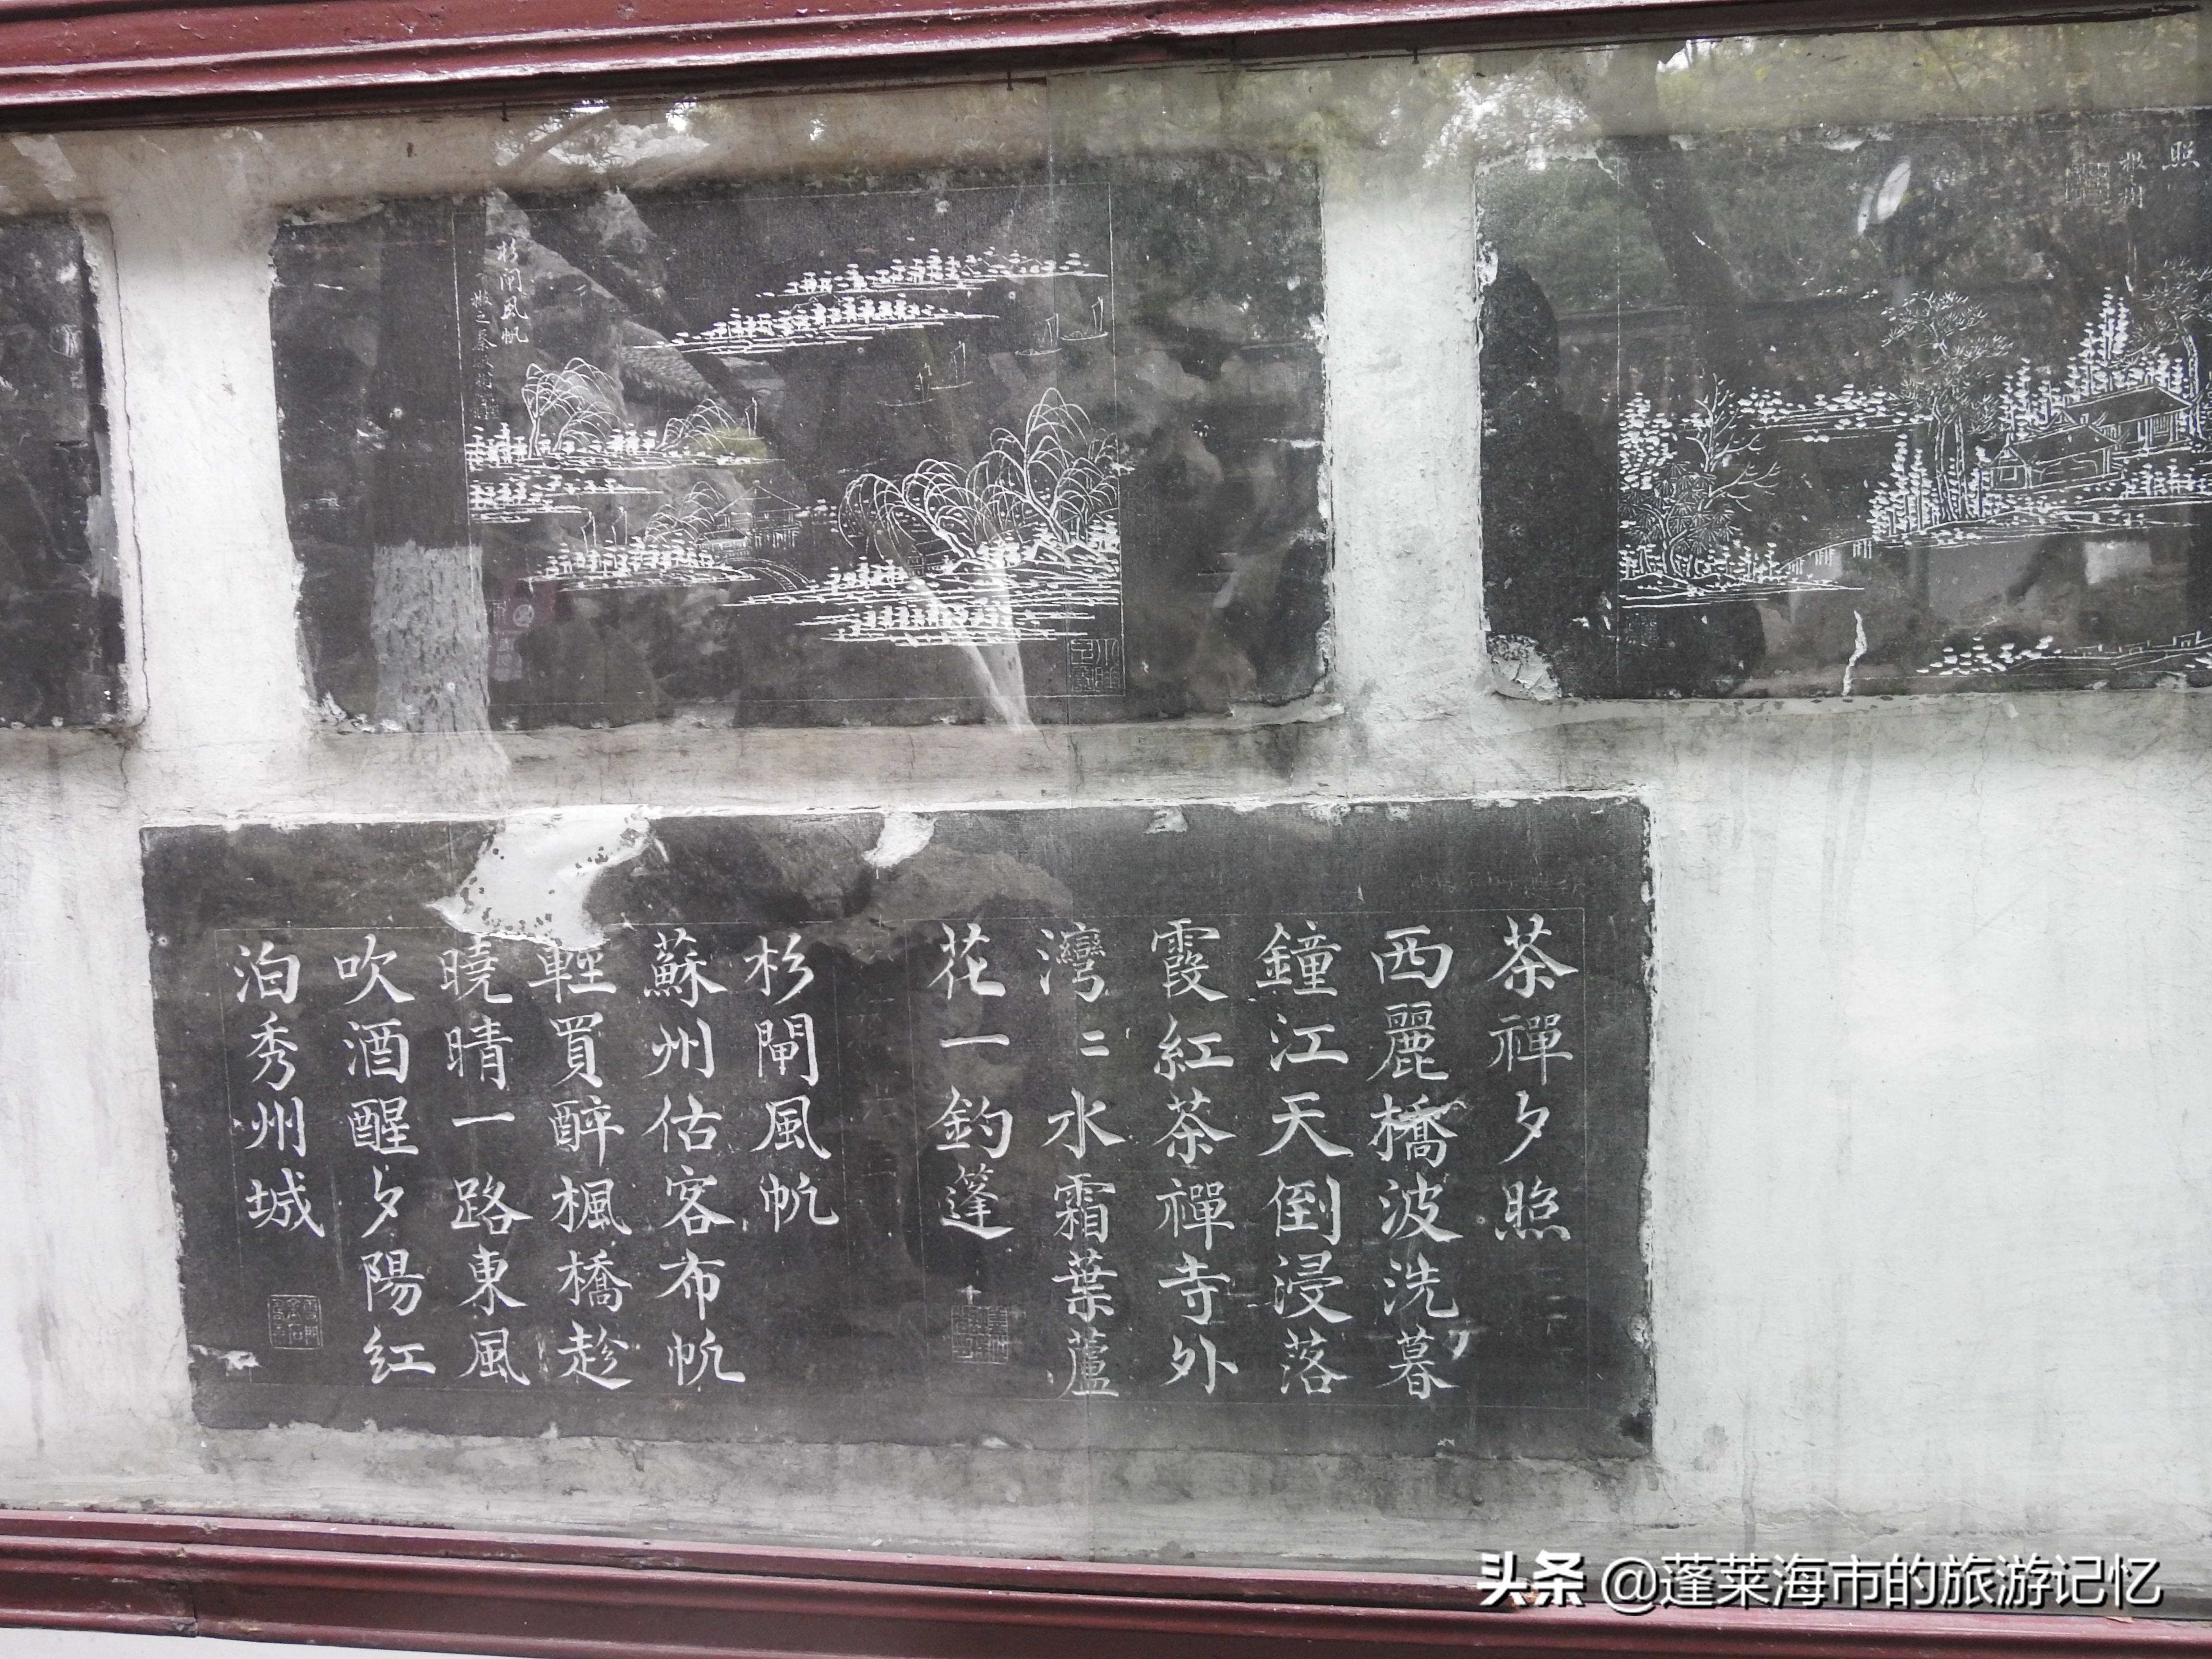 照
杉閘風帆
茶禪夕照
西麗橋波洗暮
鐘江天倒浸落
霞紅茶禪寺外
灣〻水霜葉蘆
花一釣篷
杉閘風帆
蘇州估客布帆
輕買醉楓橋趁
曉晴一路東風
吹酒醒夕陽紅
泊秀州城
头条 @蓬莱海市的旅游记忆